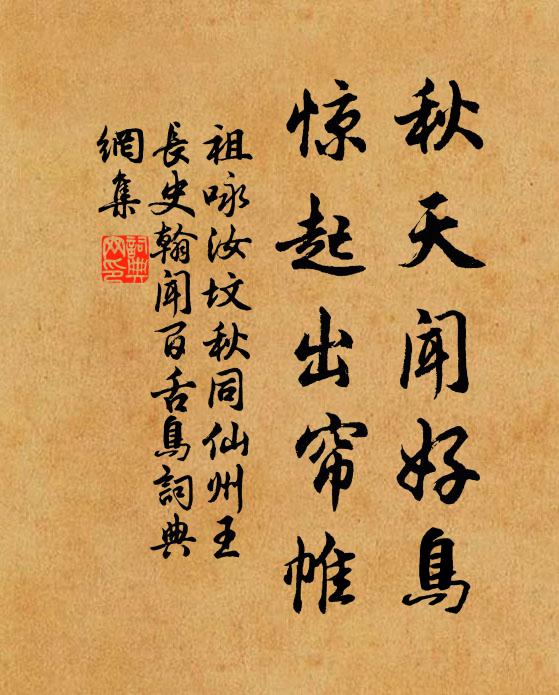 秋天闻好鸟
惊起出帘帷
祖咏汝坟秋同仙州王
長史翰闻百舌鳥詞典
網集
詞典
网印